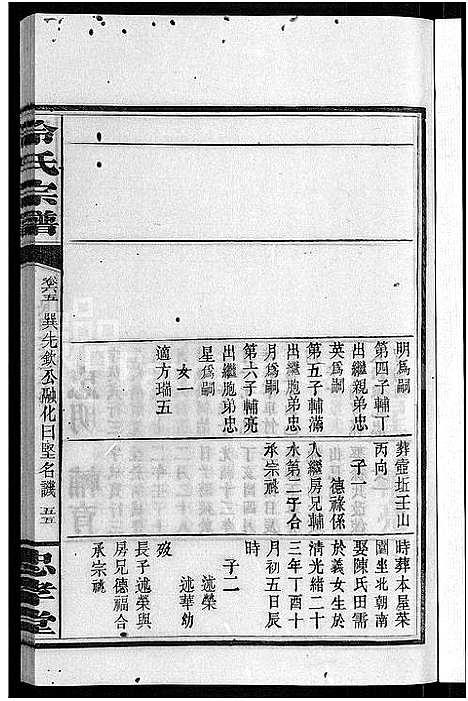 明爲嗣
第四子輔丁
出繼親弟忠
英爲嗣
第五子輔滿
出繼胞弟忠
月爲嗣
第六子輔亮
出繼胞弟忠
星爲嗣
女一
適方瑞五
葬壺坵壬山
丙向
子一
德祿係
入繼房兄輔
永第二子合
承宗祧
時葬本屋菜
園坐北朝南
娶陳氏田需
於義女生於
清光緒二十
三年丁酉十
月初五日辰
時
子二
述榮
述華幼
歿
長子述榮與
房兄德福合
承宗祧
冷氏宗譜
卷六五 巽先欽公融化日堅名譏 五五
忠孝堂